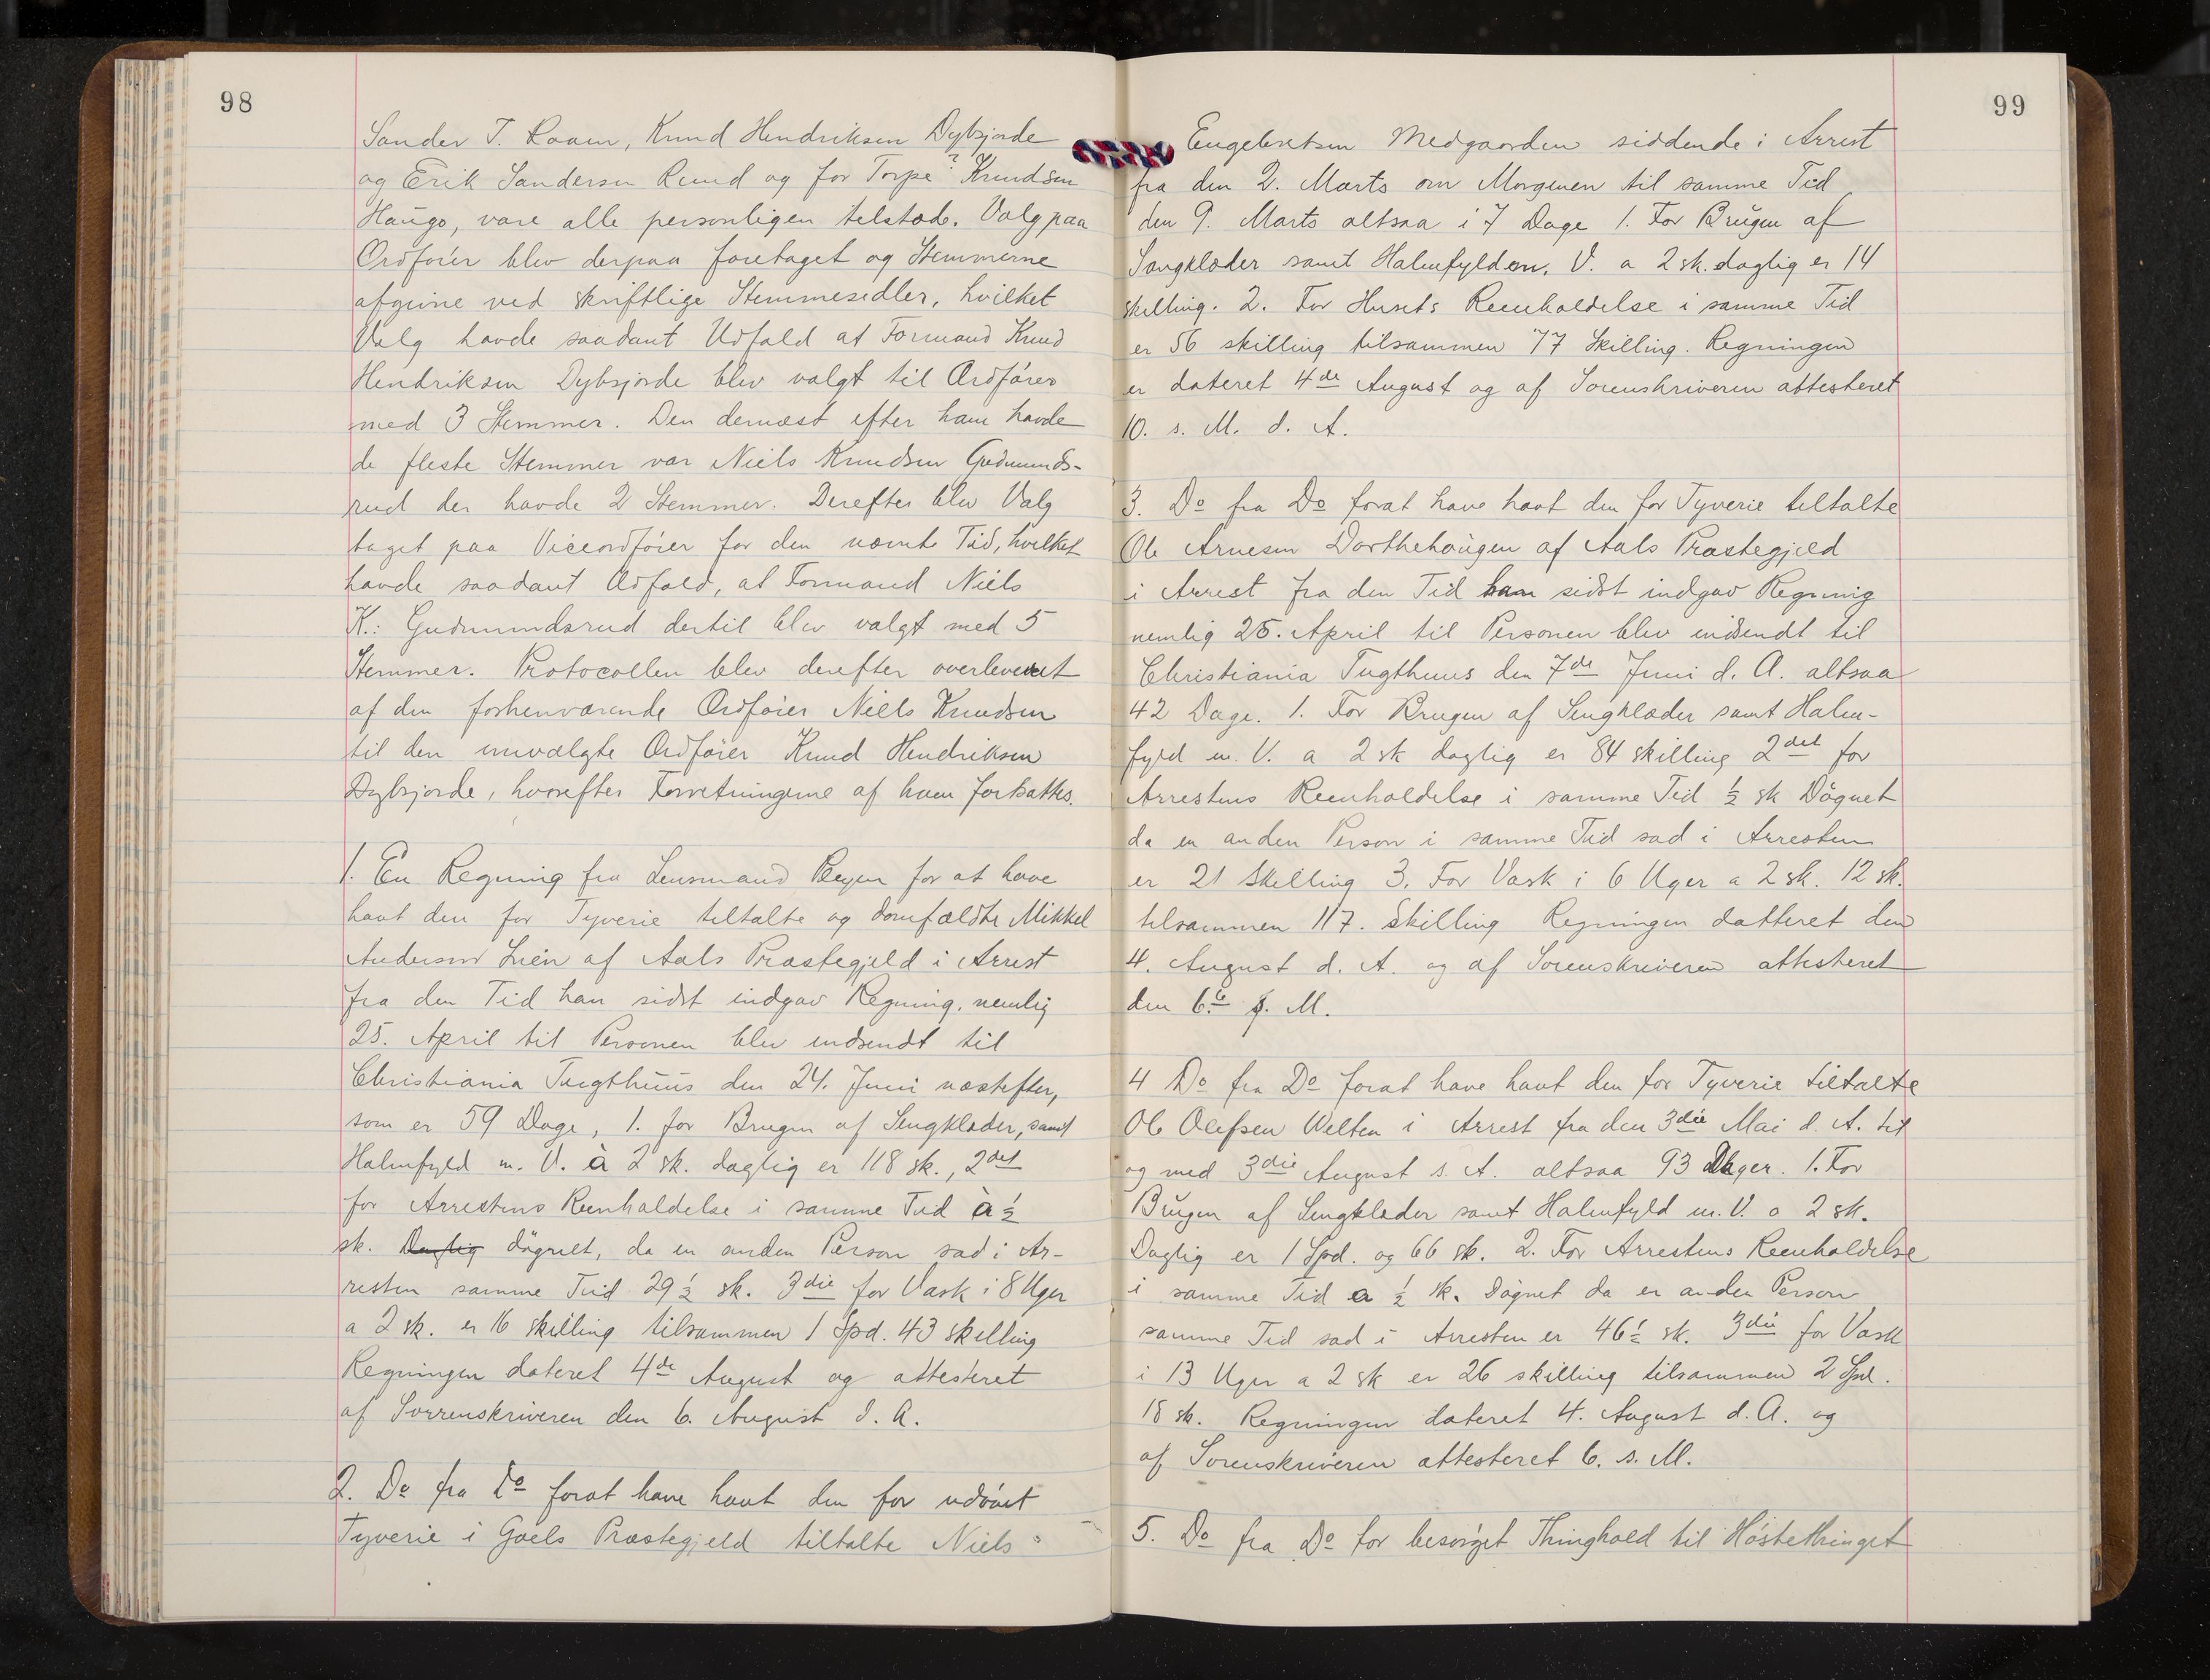 98
Sander T. Raaen, Knud Hendriksen Dybsjorde
og Erik Sandersen Ruud og for Torpe? Knudsen
Haugo, vare alle personligen tilstæde. Valg paa
Ordfører blev derpaa foretaget og Stemmerne
afgivne ved skriftlige Stemmesedler, hvilket
Valg havde saadant Udfald at Formand Knud
Hendriksen Dybsjorde blev valgt til Ordfører
med 3 Stemmer. Den dernæst efter ham havde
de fleste Stemmer var Niels Knudsen Gudmunds-
rud der havde 2 Stemmer. Derefter blev Valg
taget paa Viceordfører for den nævnte Tid, hvilket
havde saadant Udfald, at Formand Niels
K.: Gudmundsrud dertil blev valgt med 5
Stemmer. Protocollen blev derefter overleveret
af den forhenværende Ordfører Niels Knudsen
til den nuvalgte Ordfører Knud Hendriksen
Dybsjorde, hvorefter Forretningerne af ham fortsattes.
1. En Regning fra Lensmand Beyer for at have
havt den for Tyverie tiltalte og domfældte Mikkel
Andersen Lien af Aals Præstegjeld i Arrest
fra den Tid han sidst indgav Regning, nemlig
25. April til Personen blev indsendt til
Christiania Tugthuus den 24. Juni næstefter,
som er 59 Dage, 1. for Brugen af Sengklæder, samt
Halmfyld m. V. à 2 sk. daglig er 118 sk., 2det
for Arrestens Reenholdelse i samme Tid à ½
sk. Daglig døgnet, da en anden Person sad i Ar-
resten samme Tid 29½ sk. 3die for Vask i 8 Uger
a 2 sk. er 16 skilling tilsammen 1 Spd. 43 skilling
Regningen dateret 4de August og attesteret
af Sorrenskriveren den 6. August d. A.
2. Do fra Do forat have havt den for udøvet
Tyverie i Goels Præstegjeld tiltalte Niels
99
Engebretsen Medgaarden siddende i Arrest
fra den 2. Marts om Morgenen til samme Tid
den 9. Marts altsaa i 7 Dage 1. For Brugen af
Sangklæder samt Halmfyld m. V. a 2 sk. daglig er 14
skilling. 2. For Husets Reenholdelse i samme Tid
er 56 skilling tilsammen 77 Skilling. Regningen
er dateret 4de August og af Sorenskriveren attesteret
10. s. M. d. A.
3. Do fra Do forat have havt den for Tyverie tiltalte
Ole Arnesen Dorthehaugen af Aals Præstegjeld
i Arrest fra den Tid han sidst indgav Regning
nemlig 25. April til Personen blev indsendt til
Christiania Tugthuus den 7de Juni d. A. altsaa
42 Dage. 1. For Brugen af Sengklæder samt Halm-
fyld m. V. a 2 sk daglig er 84 skilling 2det for
Arrestens Reenholdelse i samme Tid ½ sk Døgnet
da en anden Person i samme Tid sad i Arresten
er 21 Skilling 3. For Vask i 6 Uger a 2 sk. 12 sk.
tilsammen 117. Skilling Regningen datteret den
4. August d. A. og af Sorenskriveren attesteret
den 6te s. M.
4 Do fra Do forat have havt den for Tyverie tiltalte
Ole Olefsen Welten i Arrest fra den 3die Mai d. A. til
og med 3die August s. A. altsaa 93 Dager. 1. For
Brugen af Sengklæder samt Halmfyld m. V. a 2 sk.
Daglig er 1 Spd. og 66 sk. 2. For Arrestens Reenholdelse
i samme Tid a ½ sk. Døgnet da en anden Person
samme Tid sad i Arresten er 46½ sk. 3die for Vask
i 13 Uger a 2 sk er 26 skilling tilsammen 2 Spd.
18 sk. Regningen dateret 4. August d. A. og
af Sorenskriveren attesteret 6. s. M.
5. Do fra Do for besørget Thinghold til Høstethinget